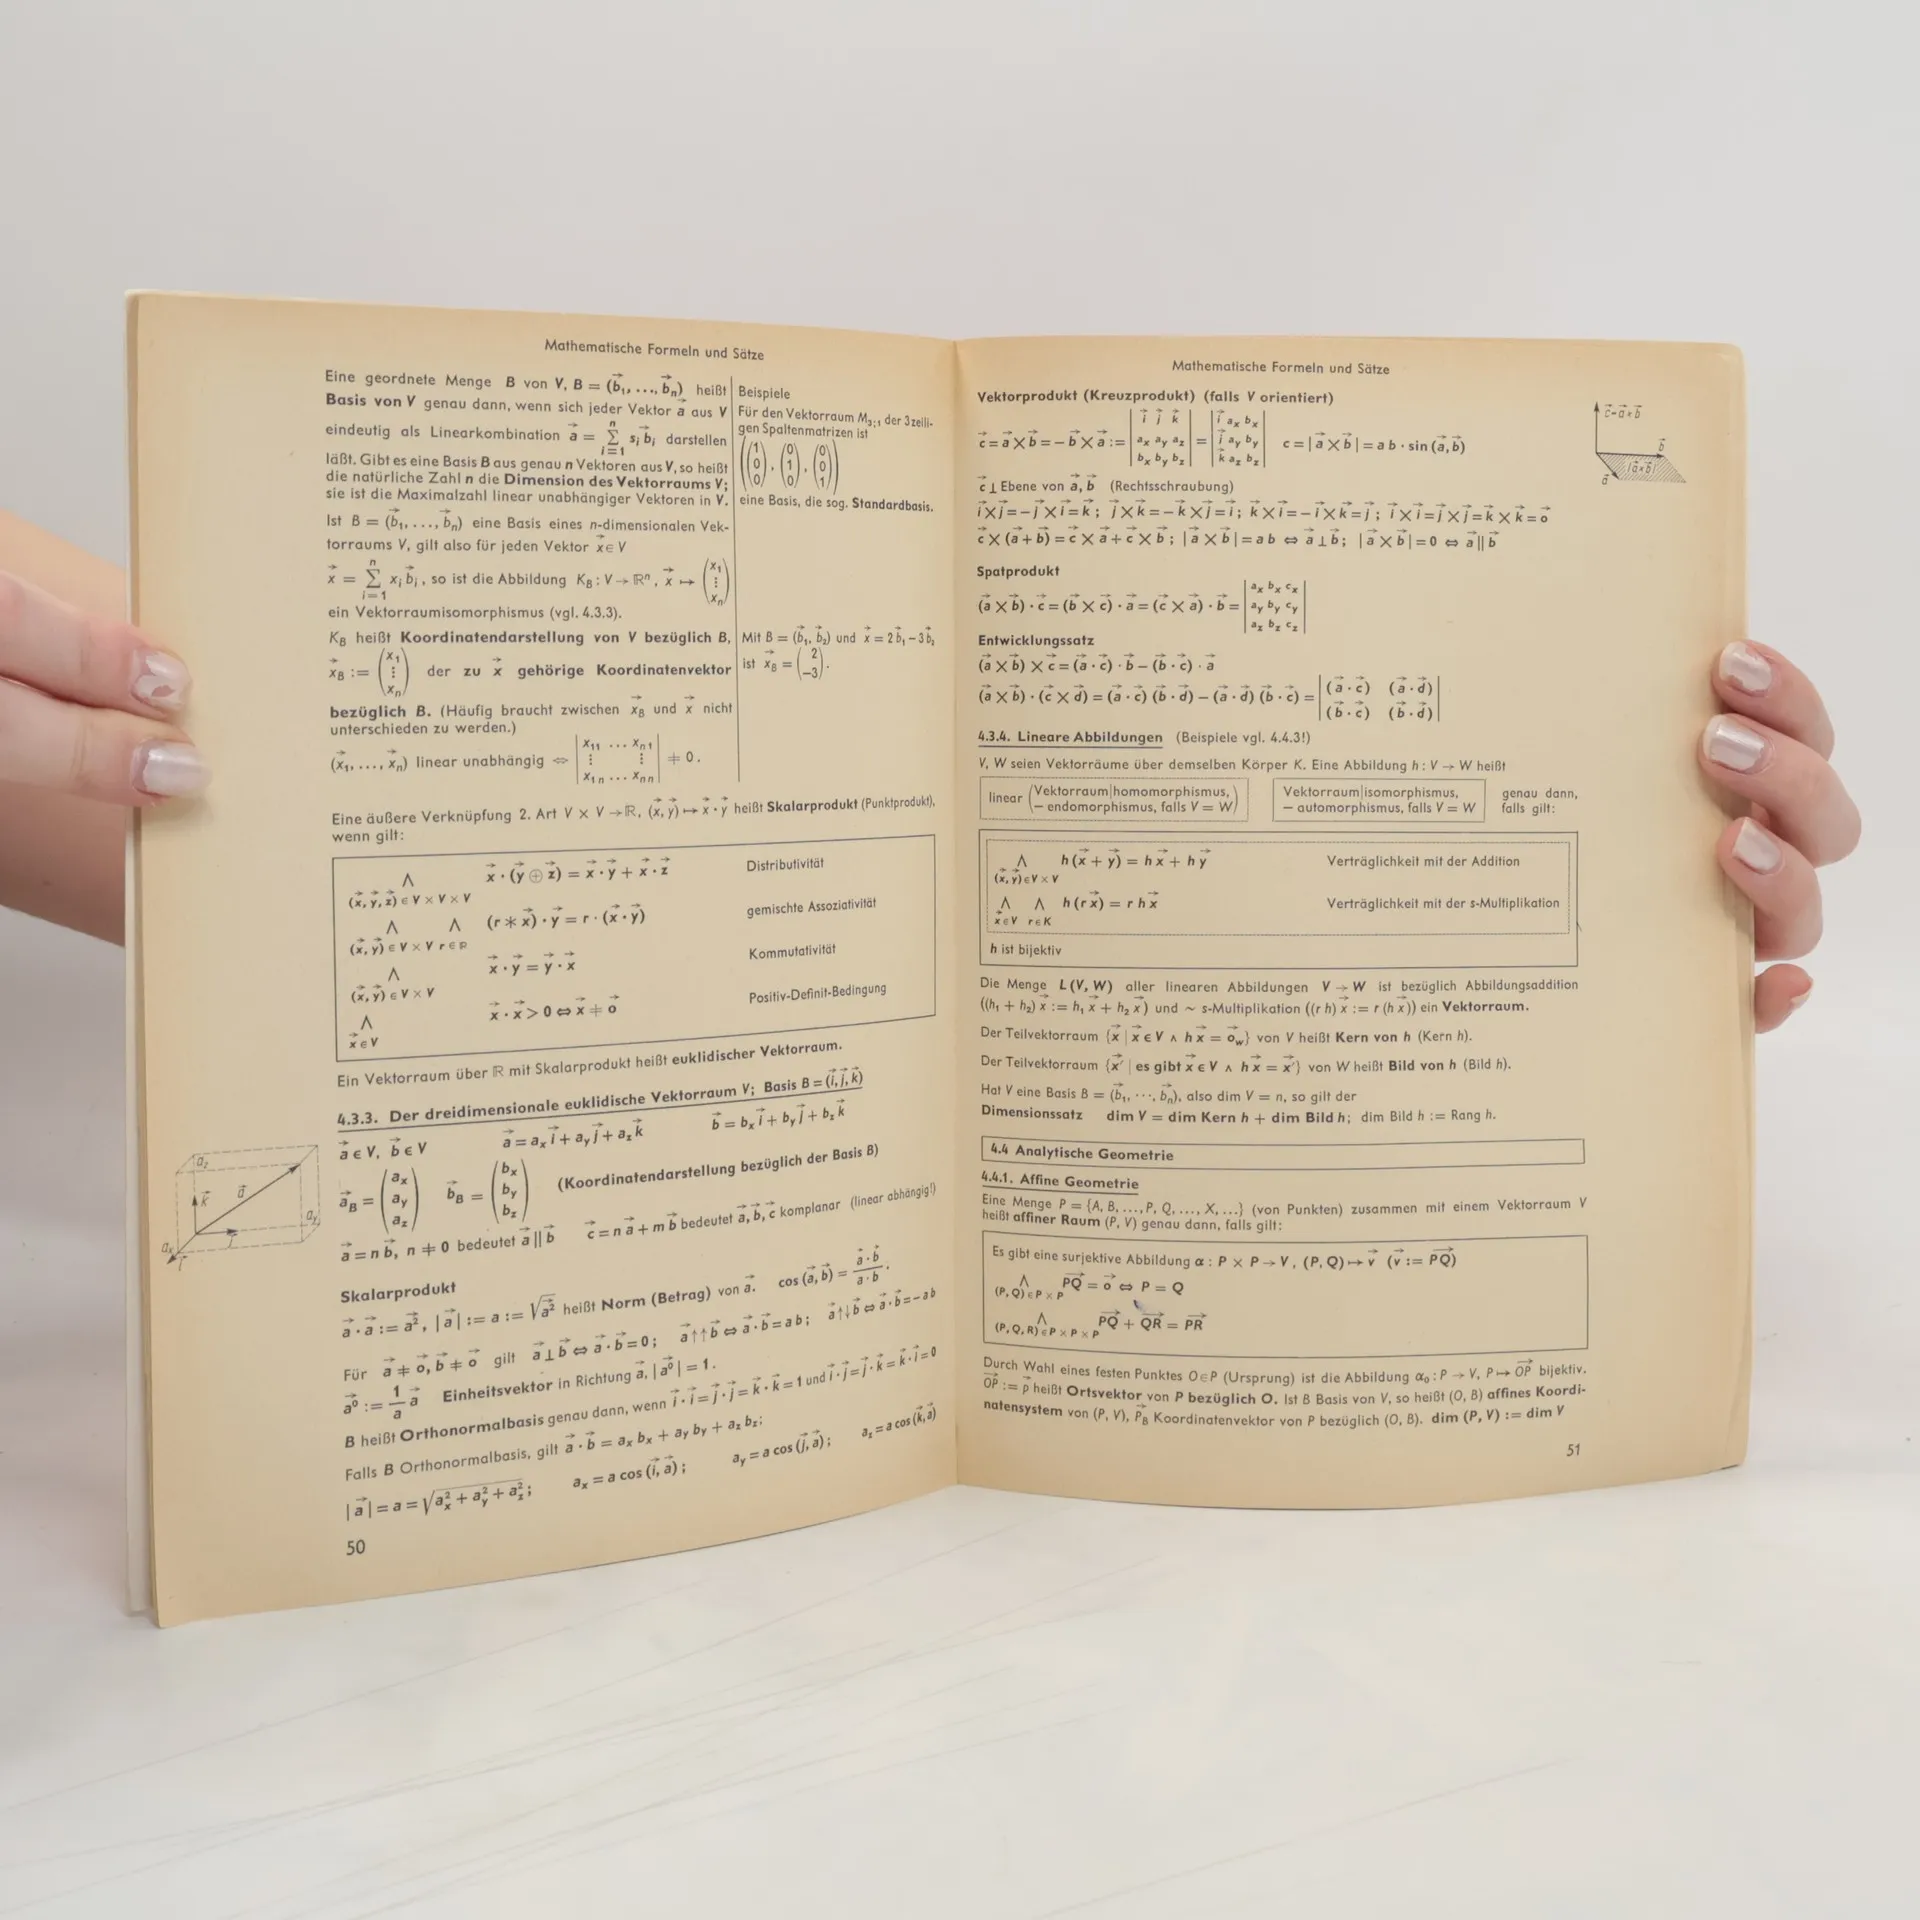 Mathematische Formeln und Sätze
Eine geordnete Menge B von V, B = (b⃗₁, ..., b⃗ₙ) heißt
Basis von V genau dann, wenn sich jeder Vektor a⃗ aus V
eindeutig als Linearkombination a⃗ = ∑ᵢ₌₁ⁿ sᵢ b⃗ᵢ darstellen
läßt. Gibt es eine Basis B aus genau n Vektoren aus V, so heißt
die natürliche Zahl n die Dimension des Vektorraums V;
sie ist die Maximalzahl linear unabhängiger Vektoren in V.
Ist B = (b⃗₁, ..., b⃗ₙ) eine Basis eines n-dimensionalen Vek-
torraums V, gilt also für jeden Vektor x⃗ ∈ V
x⃗ = ∑ᵢ₌₁ⁿ xᵢ b⃗ᵢ, so ist die Abbildung K_B : V → ℝⁿ, x⃗ ↦ (x₁ ⋮ xₙ)
ein Vektorraumisomorphismus (vgl. 4.3.3).
K_B heißt Koordinatendarstellung von V bezüglich B,
x⃗_B := (x₁ ⋮ xₙ) der zu x⃗ gehörige Koordinatenvektor
bezüglich B. (Häufig braucht zwischen x⃗_B und x⃗ nicht
unterschieden zu werden.)
(x⃗₁, ..., x⃗ₙ) linear unabhängig ⇔ |x₁₁ ... xₙ₁ ⋮ ⋮ x₁ₙ ... xₙₙ| ≠ 0.
Beispiele
Für den Vektorraum M₃;₁ der 3zeili-
gen Spaltenmatrizen ist
((1 0 0), (0 1 0), (0 0 1))
eine Basis, die sog. Standardbasis.
Mit B = (b⃗₁, b⃗₂) und x⃗ = 2 b⃗₁ − 3 b⃗₂
ist x⃗_B = (2 −3).
Eine äußere Verknüpfung 2. Art V × V → ℝ, (x⃗, y⃗) ↦ x⃗ · y⃗ heißt Skalarprodukt (Punktprodukt),
wenn gilt:
∧ x⃗ · (y⃗ ⊕ z⃗) = x⃗ · y⃗ + x⃗ · z⃗ Distributivität
(x⃗, y⃗, z⃗) ∈ V × V × V
∧ ∧ (r ∗ x⃗) · y⃗ = r · (x⃗ · y⃗) gemischte Assoziativität
(x⃗, y⃗) ∈ V × V r ∈ ℝ
∧ x⃗ · y⃗ = y⃗ · x⃗ Kommutativität
(x⃗, y⃗) ∈ V × V
∧ x⃗ · x⃗ > 0 ⇔ x⃗ ≠ o⃗ Positiv-Definit-Bedingung
x⃗ ∈ V
Ein Vektorraum über ℝ mit Skalarprodukt heißt euklidischer Vektorraum.
4.3.3. Der dreidimensionale euklidische Vektorraum V; Basis B = (i⃗, j⃗, k⃗)
a⃗ ∈ V, b⃗ ∈ V a⃗ = aₓ i⃗ + a_y j⃗ + a_z k⃗ b⃗ = bₓ i⃗ + b_y j⃗ + b_z k⃗
a⃗_B = (aₓ a_y a_z) b⃗_B = (bₓ b_y b_z) (Koordinatendarstellung bezüglich der Basis B)
a⃗ = n b⃗, n ≠ 0 bedeutet a⃗ || b⃗ c⃗ = n a⃗ + m b⃗ bedeutet a⃗, b⃗, c⃗ komplanar (linear abhängig!)
a_z
k⃗
a⃗
a_y
j⃗
aₓ
i⃗
Skalarprodukt
a⃗ · a⃗ := a⃗², |a⃗| := a := √a⃗² heißt Norm (Betrag) von a⃗. cos (a⃗, b⃗) = (a⃗ · b⃗)/(a · b).
Für a⃗ ≠ o⃗, b⃗ ≠ o⃗ gilt a⃗ ⊥ b⃗ ⇔ a⃗ · b⃗ = 0; a⃗ ↑↑ b⃗ ⇔ a⃗ · b⃗ = a b; a⃗ ↑↓ b⃗ ⇔ a⃗ · b⃗ = − a b
a⃗⁰ := 1/a a⃗ Einheitsvektor in Richtung a⃗, |a⃗⁰| = 1.
B heißt Orthonormalbasis genau dann, wenn i⃗ · i⃗ = j⃗ · j⃗ = k⃗ · k⃗ = 1 und i⃗ · j⃗ = j⃗ · k⃗ = k⃗ · i⃗ = 0
Falls B Orthonormalbasis, gilt a⃗ · b⃗ = aₓ bₓ + a_y b_y + a_z b_z;
|a⃗| = a = √(aₓ² + a_y² + a_z²); aₓ = a cos (i⃗, a⃗); a_y = a cos (j⃗, a⃗); a_z = a cos (k⃗, a⃗)
50
Mathematische Formeln und Sätze
Vektorprodukt (Kreuzprodukt) (falls V orientiert)
c⃗ = a⃗ × b⃗ = − b⃗ × a⃗ := |i⃗ j⃗ k⃗ aₓ a_y a_z bₓ b_y b_z| = |i⃗ aₓ bₓ j⃗ a_y b_y k⃗ a_z b_z| c = |a⃗ × b⃗| = a b · sin (a⃗, b⃗)
c⃗ ⊥ Ebene von a⃗, b⃗ (Rechtsschraubung)
c⃗ = a⃗ × b⃗
b⃗
|a⃗ × b⃗|
a⃗
i⃗ × j⃗ = − j⃗ × i⃗ = k⃗; j⃗ × k⃗ = − k⃗ × j⃗ = i⃗; k⃗ × i⃗ = − i⃗ × k⃗ = j⃗; i⃗ × i⃗ = j⃗ × j⃗ = k⃗ × k⃗ = o⃗
c⃗ × (a⃗ + b⃗) = c⃗ × a⃗ + c⃗ × b⃗; |a⃗ × b⃗| = a b ⇔ a⃗ ⊥ b⃗; |a⃗ × b⃗| = 0 ⇔ a⃗ || b⃗
Spatprodukt
(a⃗ × b⃗) · c⃗ = (b⃗ × c⃗) · a⃗ = (c⃗ × a⃗) · b⃗ = |aₓ bₓ cₓ a_y b_y c_y a_z b_z c_z|
Entwicklungssatz
(a⃗ × b⃗) × c⃗ = (a⃗ · c⃗) · b⃗ − (b⃗ · c⃗) · a⃗
(a⃗ × b⃗) · (c⃗ × d⃗) = (a⃗ · c⃗) (b⃗ · d⃗) − (a⃗ · d⃗) (b⃗ · c⃗) = |(a⃗ · c⃗) (a⃗ · d⃗) (b⃗ · c⃗) (b⃗ · d⃗)|
4.3.4. Lineare Abbildungen (Beispiele vgl. 4.4.3!)
V, W seien Vektorräume über demselben Körper K. Eine Abbildung h : V → W heißt
linear (Vektorraum|homomorphismus, − endomorphismus, falls V = W)
Vektorraum|isomorphismus, − automorphismus, falls V = W
genau dann, falls gilt:
∧ h (x⃗ + y⃗) = h x⃗ + h y⃗ Verträglichkeit mit der Addition
(x⃗, y⃗) ∈ V × V
∧ ∧ h (r x⃗) = r h x⃗ Verträglichkeit mit der s-Multiplikation
x⃗ ∈ V r ∈ K
h ist bijektiv
Die Menge L (V, W) aller linearen Abbildungen V → W ist bezüglich Abbildungsaddition
((h₁ + h₂) x⃗ := h₁ x⃗ + h₂ x⃗) und ~ s-Multiplikation ((r h) x⃗ := r (h x⃗)) ein Vektorraum.
Der Teilvektorraum {x⃗ | x⃗ ∈ V ∧ h x⃗ = o⃗_w} von V heißt Kern von h (Kern h).
Der Teilvektorraum {x⃗′ | es gibt x⃗ ∈ V ∧ h x⃗ = x⃗′} von W heißt Bild von h (Bild h).
Hat V eine Basis B = (b⃗₁, ···, b⃗ₙ), also dim V = n, so gilt der
Dimensionssatz dim V = dim Kern h + dim Bild h; dim Bild h := Rang h.
4.4 Analytische Geometrie
4.4.1. Affine Geometrie
Eine Menge P = {A, B, ..., P, Q, ..., X, ...} (von Punkten) zusammen mit einem Vektorraum V
heißt affiner Raum (P, V) genau dann, falls gilt:
Es gibt eine surjektive Abbildung α : P × P → V, (P, Q) ↦ v⃗ (v⃗ := P͞Q⃗)
∧ PQ⃗ = o⃗ ⇔ P = Q
(P, Q) ∈ P × P
∧ PQ⃗ + QR⃗ = PR⃗
(P, Q, R) ∈ P × P × P
Durch Wahl eines festen Punktes O ∈ P (Ursprung) ist die Abbildung α₀ : P → V, P ↦ OP⃗ bijektiv.
OP⃗ := p⃗ heißt Ortsvektor von P bezüglich O. Ist B Basis von V, so heißt (O, B) affines Koordi-
natensystem von (P, V), P⃗_B Koordinatenvektor von P bezüglich (O, B). dim (P, V) := dim V
51